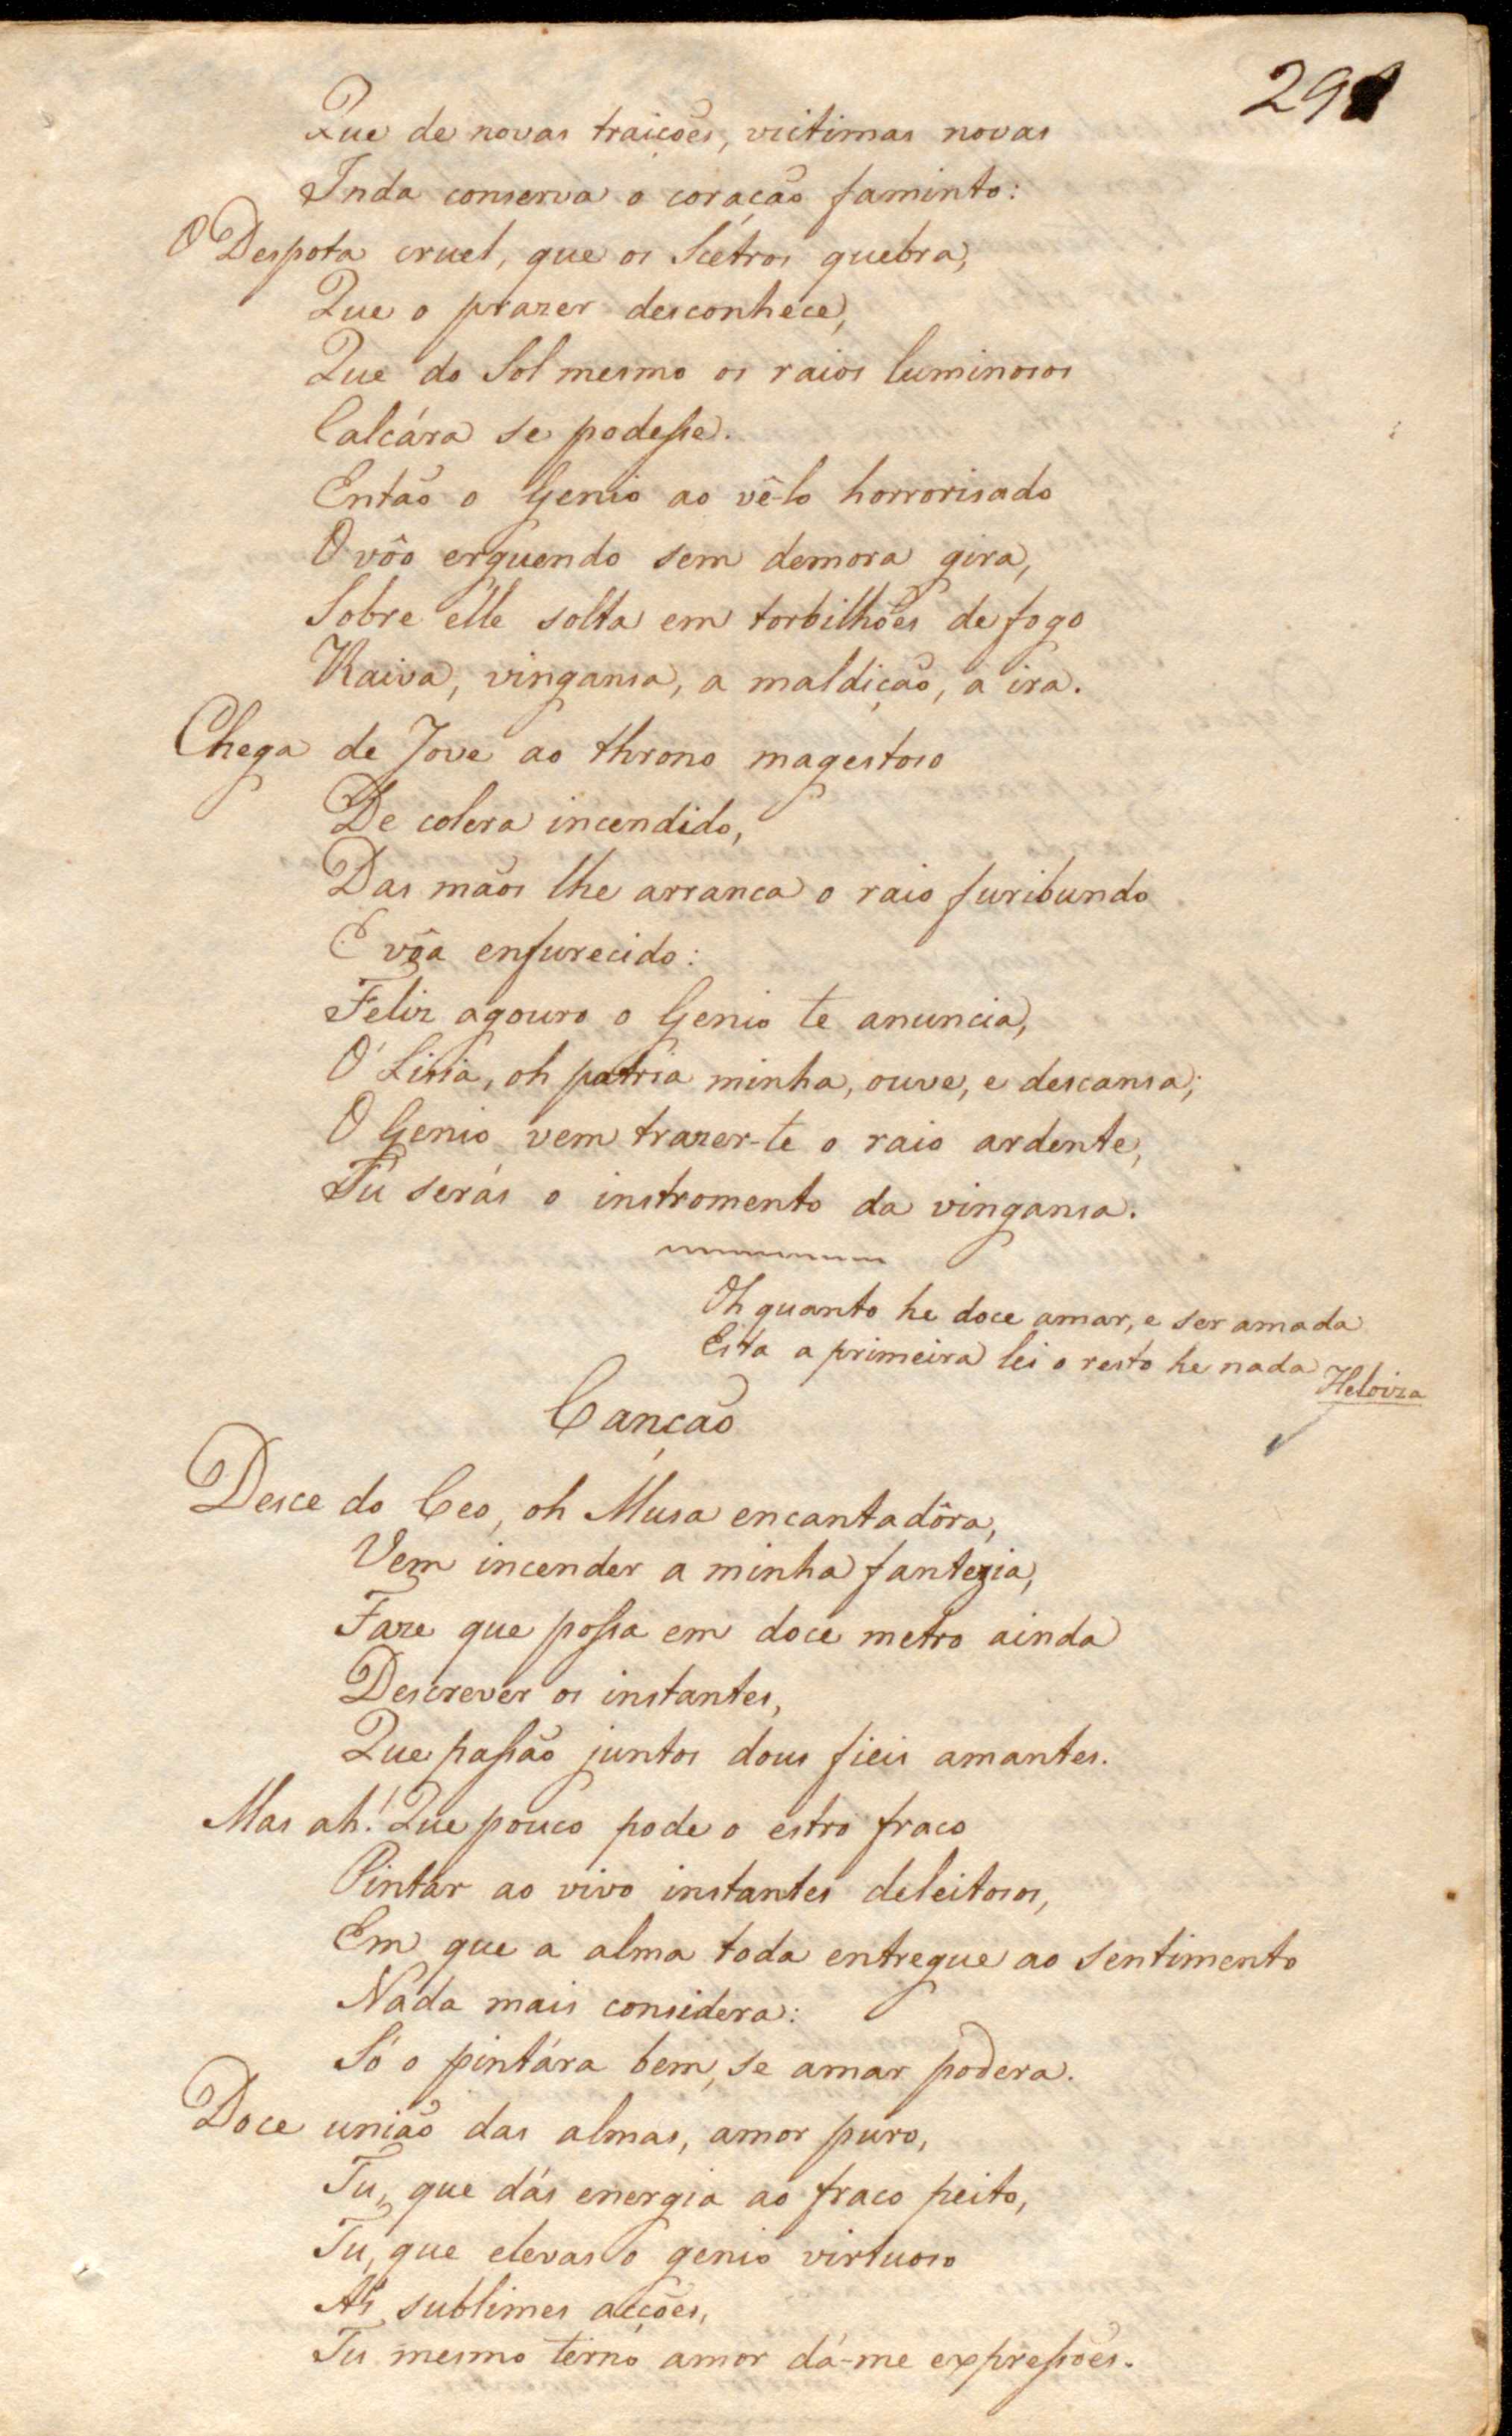 Que de novas traições, victimas novas
Inda conserva o coração faminto:
O Despota cruel, que os Scetros quebra,
Que o prazer desconhece,
Que do Sol mesmo os raios luminosos
Calcára se podesse.
Então o Genio ao vê-lo horrorisado
O vôo erguendo sem demora gira,
Sobre elle solta em torbilhões de fogo
Raiva, vingansa, a maldição, a ira.
Chega de Jove ao throno magestoso
De colera incendido,
Das mãos lhe arranca o raio furibundo
E vôa enfurecido:
Feliz agouro o Genio te anuncia,
O' Lisia, oh patria minha, ouve, e descansa;
O Genio vem trazer-te o raio ardente,
Tu serás o instromento da vingansa.
Oh quanto he doce amar, e ser amada
Esta a primeira lei o resto he nada
Heloiza
Canção
Desce do Ceo, oh Musa encantadôra,
Vem incender a minha fantezia,
Faze que possa em doce metro ainda
Descrever os instantes,
Que passão juntos dous fieis amantes.
Mas ah! Que pouco pode o estro fraco
Pintar ao vivo instantes deleitosos,
Em que a alma toda entregue ao sentimento
Nada mais considera:
Só o pintára bem, se amar podera.
Doce união das almas, amor puro,
Tu, que dás energia ao fraco peito,
Tu, que elevas o genio virtuoso
A's sublimes acções,
Tu mesmo terno amor dá-me expressões.